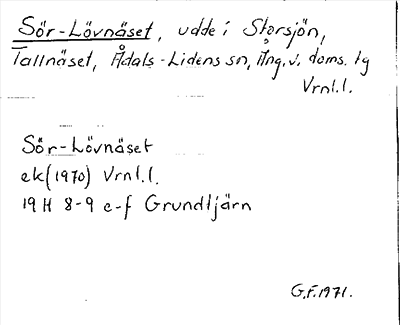 Sör-Lövnäset, udde i Storsjön,
Tallnäset, Ådals-Lidens sn, Ång. v. doms. tg
Vrnl.l.
Sör-Lövnäset
ek(1970) Vrnl.l.
19H 8-9 e-f Grundtjärn
G.F. 1971.